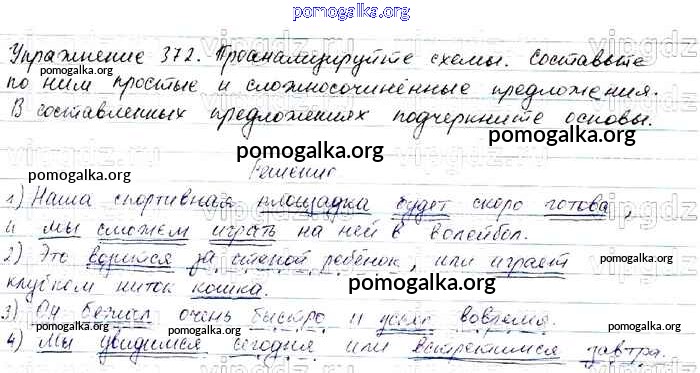 pomogalka.org
Упражнение 372. Проанализируйте схемы. Составьте
pomogalka.org
по ним простые и сложносочинённые предложения.
В составленных предложениях подчеркните основы.
pomogalka.org
Решение
1) Наша спортивная площадка будет скоро готова,
и мы сможем играть на ней в волейбол.
pomogalka.org
2) Это возится за стеной ребёнок, или играет
клубком ниток кошка.
pomogalka.org
3) Он бежал очень быстро и успел вовремя.
pomogalka.org
4) Мы увидимся сегодня или встретимся завтра.
pomogalka.org